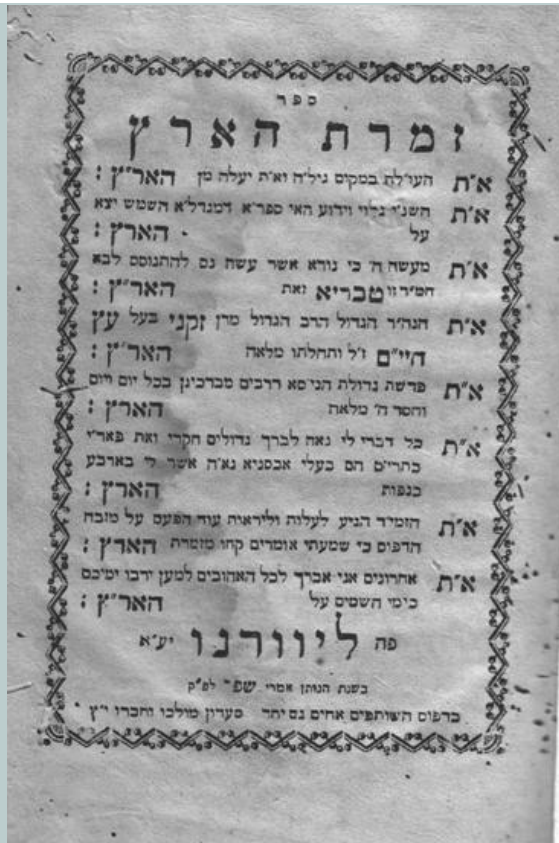 ספר
זמרת הארץ
א"ת העולה במקום גיל"ה וא"ת יעלה מן האר"ץ :
א"ת השנ"ד גלוי וידוע האי ספר"א דמגדל"א השמש יצא
על הארץ :
א"ת מעשה ה' כי נורא אשר עשה נם להתנוסס לבא
טבריא זאת האר"ץ :
א"ת הנה"ר הגדול הרב הגדול מרן זקני בעל עץ
חיי"ם ז"ל ותהלתו מלאה האר"ץ :
א"ת פרשת גדולת הבי"סא רבים מברכין בכל יום ויום
וחסד ה' מלאה הארץ :
א"ת כל דברי לי נאה לברך גדולים חקרי ואת פאר"י
כתרי"ם הם בעלי אכסניא נא"ה אשר לי בארבע
כנפות הארץ :
א"ת הזמי"ר הגיע לעלות וליראות עוד הפעם על מזבח
הדפוס כי שמעתי אומרים קחו מזמרת הארץ :
א"ת אחרונים אני אברך לכל האהובים למען ירבו ימיכם
כימי השמים על האר"ץ :
פה ליוורנו יע"א
בשנת הנותן אמרי שפ"ר לפ"ק
בדפוס השותפים אחים גם יחד סעדון מולכו וחברו י"ץ